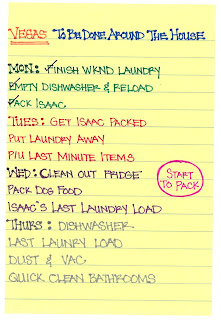 VEGAS TO BE DONE AROUND THE HOUSE
MON: FINISH WKND LAUNDRY
EMPTY DISHWASHER & RELOAD
PACK ISAAC
TUES: GET ISAAC PACKED
PUT LAUNDRY AWAY
P/U LAST MINUTE ITEMS
WED: CLEAN OUT FRIDGE
START TO PACK
PACK DOG FOOD
ISAAC'S LAST LAUNDRY LOAD
THURS: DISHWASHER
LAST LAUNRY LOAD
DUST & VAC
QUICK CLEAN BATHROOMS